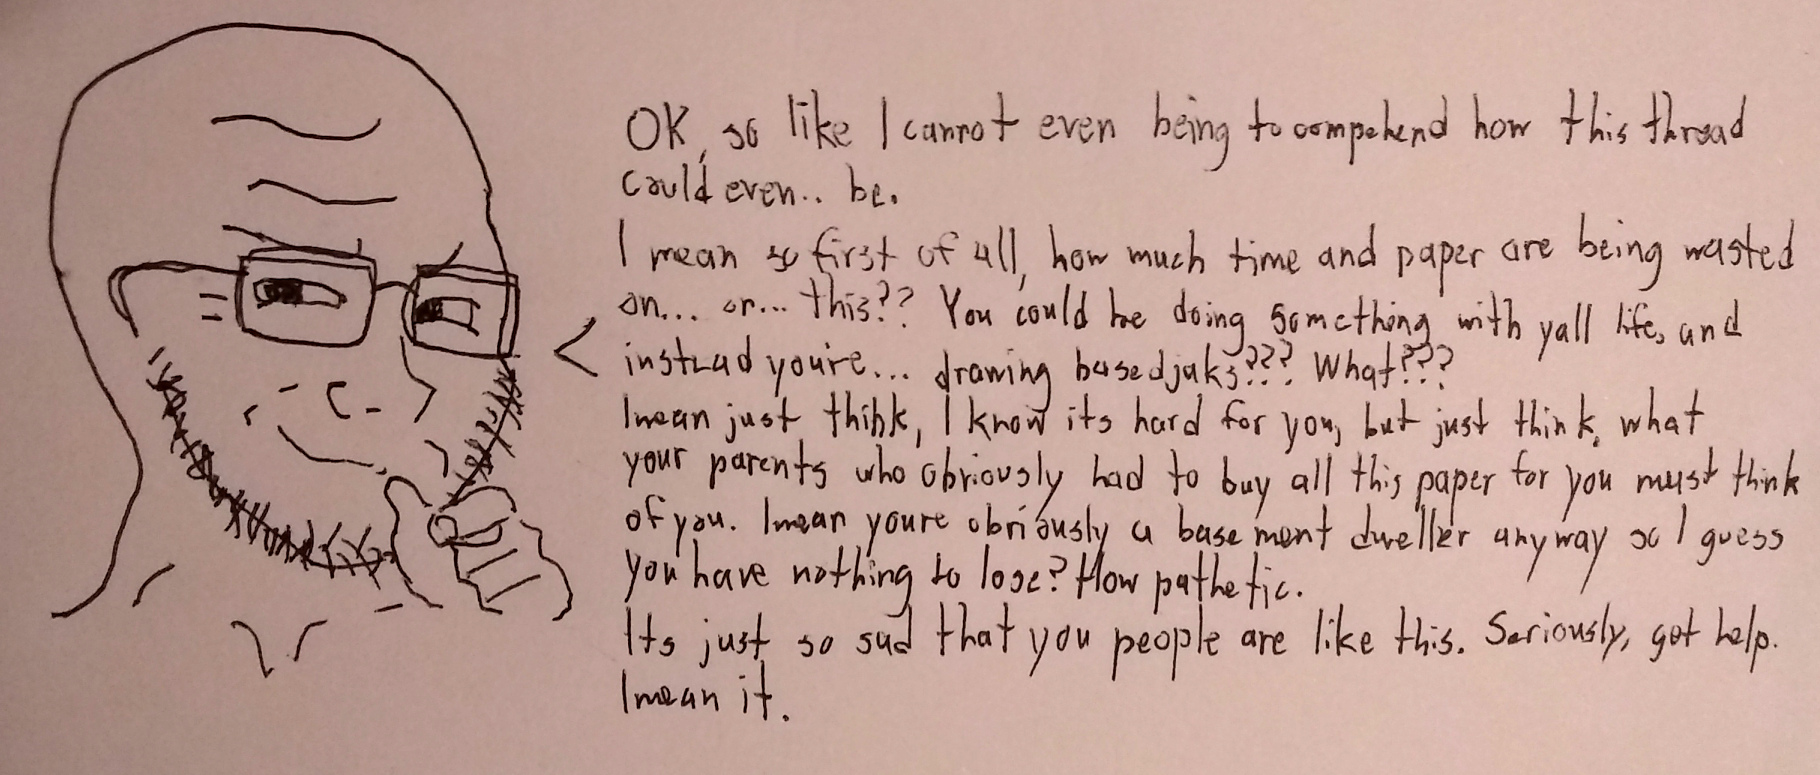 OK, so like I cannot even being to compehend how this thread
could even.. be.
I mean so first of all, how much time and paper are being wasted
on... or... this?? You could be doing something with yall life, and
instead you're... drawing basedjaks??? What???
I mean just think, I know its hard for you, but just think, what
your parents who obviously had to buy all this paper for you must think
of you. I mean youre obviously a basement dweller anyway so I guess
you have nothing to lose? How pathetic.
Its just so sad that you people are like this. Seriously, get help.
I mean it.